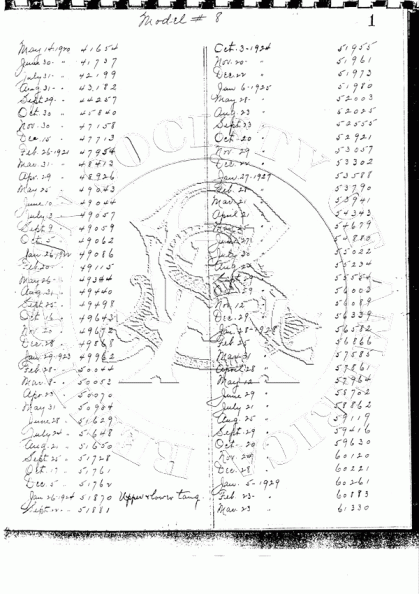 Model # 8
1
May 14-1920 41654
June 30- " 41737
July 31- " 42199
Aug 31- " 43182
Sept 29- " 44257
Oct 30 " 45840
Nov. 30 " 47158
Dec 15 " 47713
Feb 26-1921 47954
Mar. 31- " 48413
Apr. 29 " 48926
May 25 " 49043
June 10 " 49044
July 2 " 49057
Sept 9 " 49059
Oct 5 " 49062
Jan 26-1922 49086
Feb 20 " 49115
May 26 " 49344
Aug 21 " 49440
Sept 25 " 49498
Oct 16 " 49643
Nov 20 " 49672
Dec. 28 " 49868
Jan 29-1923 49962
Feb. 28 " 50044
Mar. 8 " 50052
Apr 23 " 50070
May 31 " 50904
June 28 " 51629
July 24 " 51648
Aug 21 " 51650
Sept 25 " 51728
Oct. 17 " 51761
Dec. 5 " 51762
Jan 26-1924 51870 Upper & Lower tang
Sept " 51881
Oct. 3-1924 51955
Nov. 20 " 51961
Dec 22 " 51973
Jan 6-1925 51980
May 28 " 52003
Aug 23 " 52025
Sept 23 " 52555
Oct-20 " 52921
Nov 29 " 53057
Dec 22 " 53202
Jan. 27-1927 53588
Feb. 28 " 53790
Mar. 21 " 53941
April 21 54343
54679
June 27 54880
July 30 55022
55234
55554
56003
Nov. 12 " 56089
Dec. 29 " 56339
Jan 28-1928 56582
Feb 25 " 56866
Mar 31 " 57585
April 28 " 57861
May 12 " 57964
June 29 " 58702
July 21 " 58862
Aug 25 " 59119
Sept 29 " 59416
Oct- 20 " 59630
Nov 24 " 60120
Dec- 28 " 60221
Jan. 5-1929 60261
Feb 23 " 60883
Mar 23 " 61330